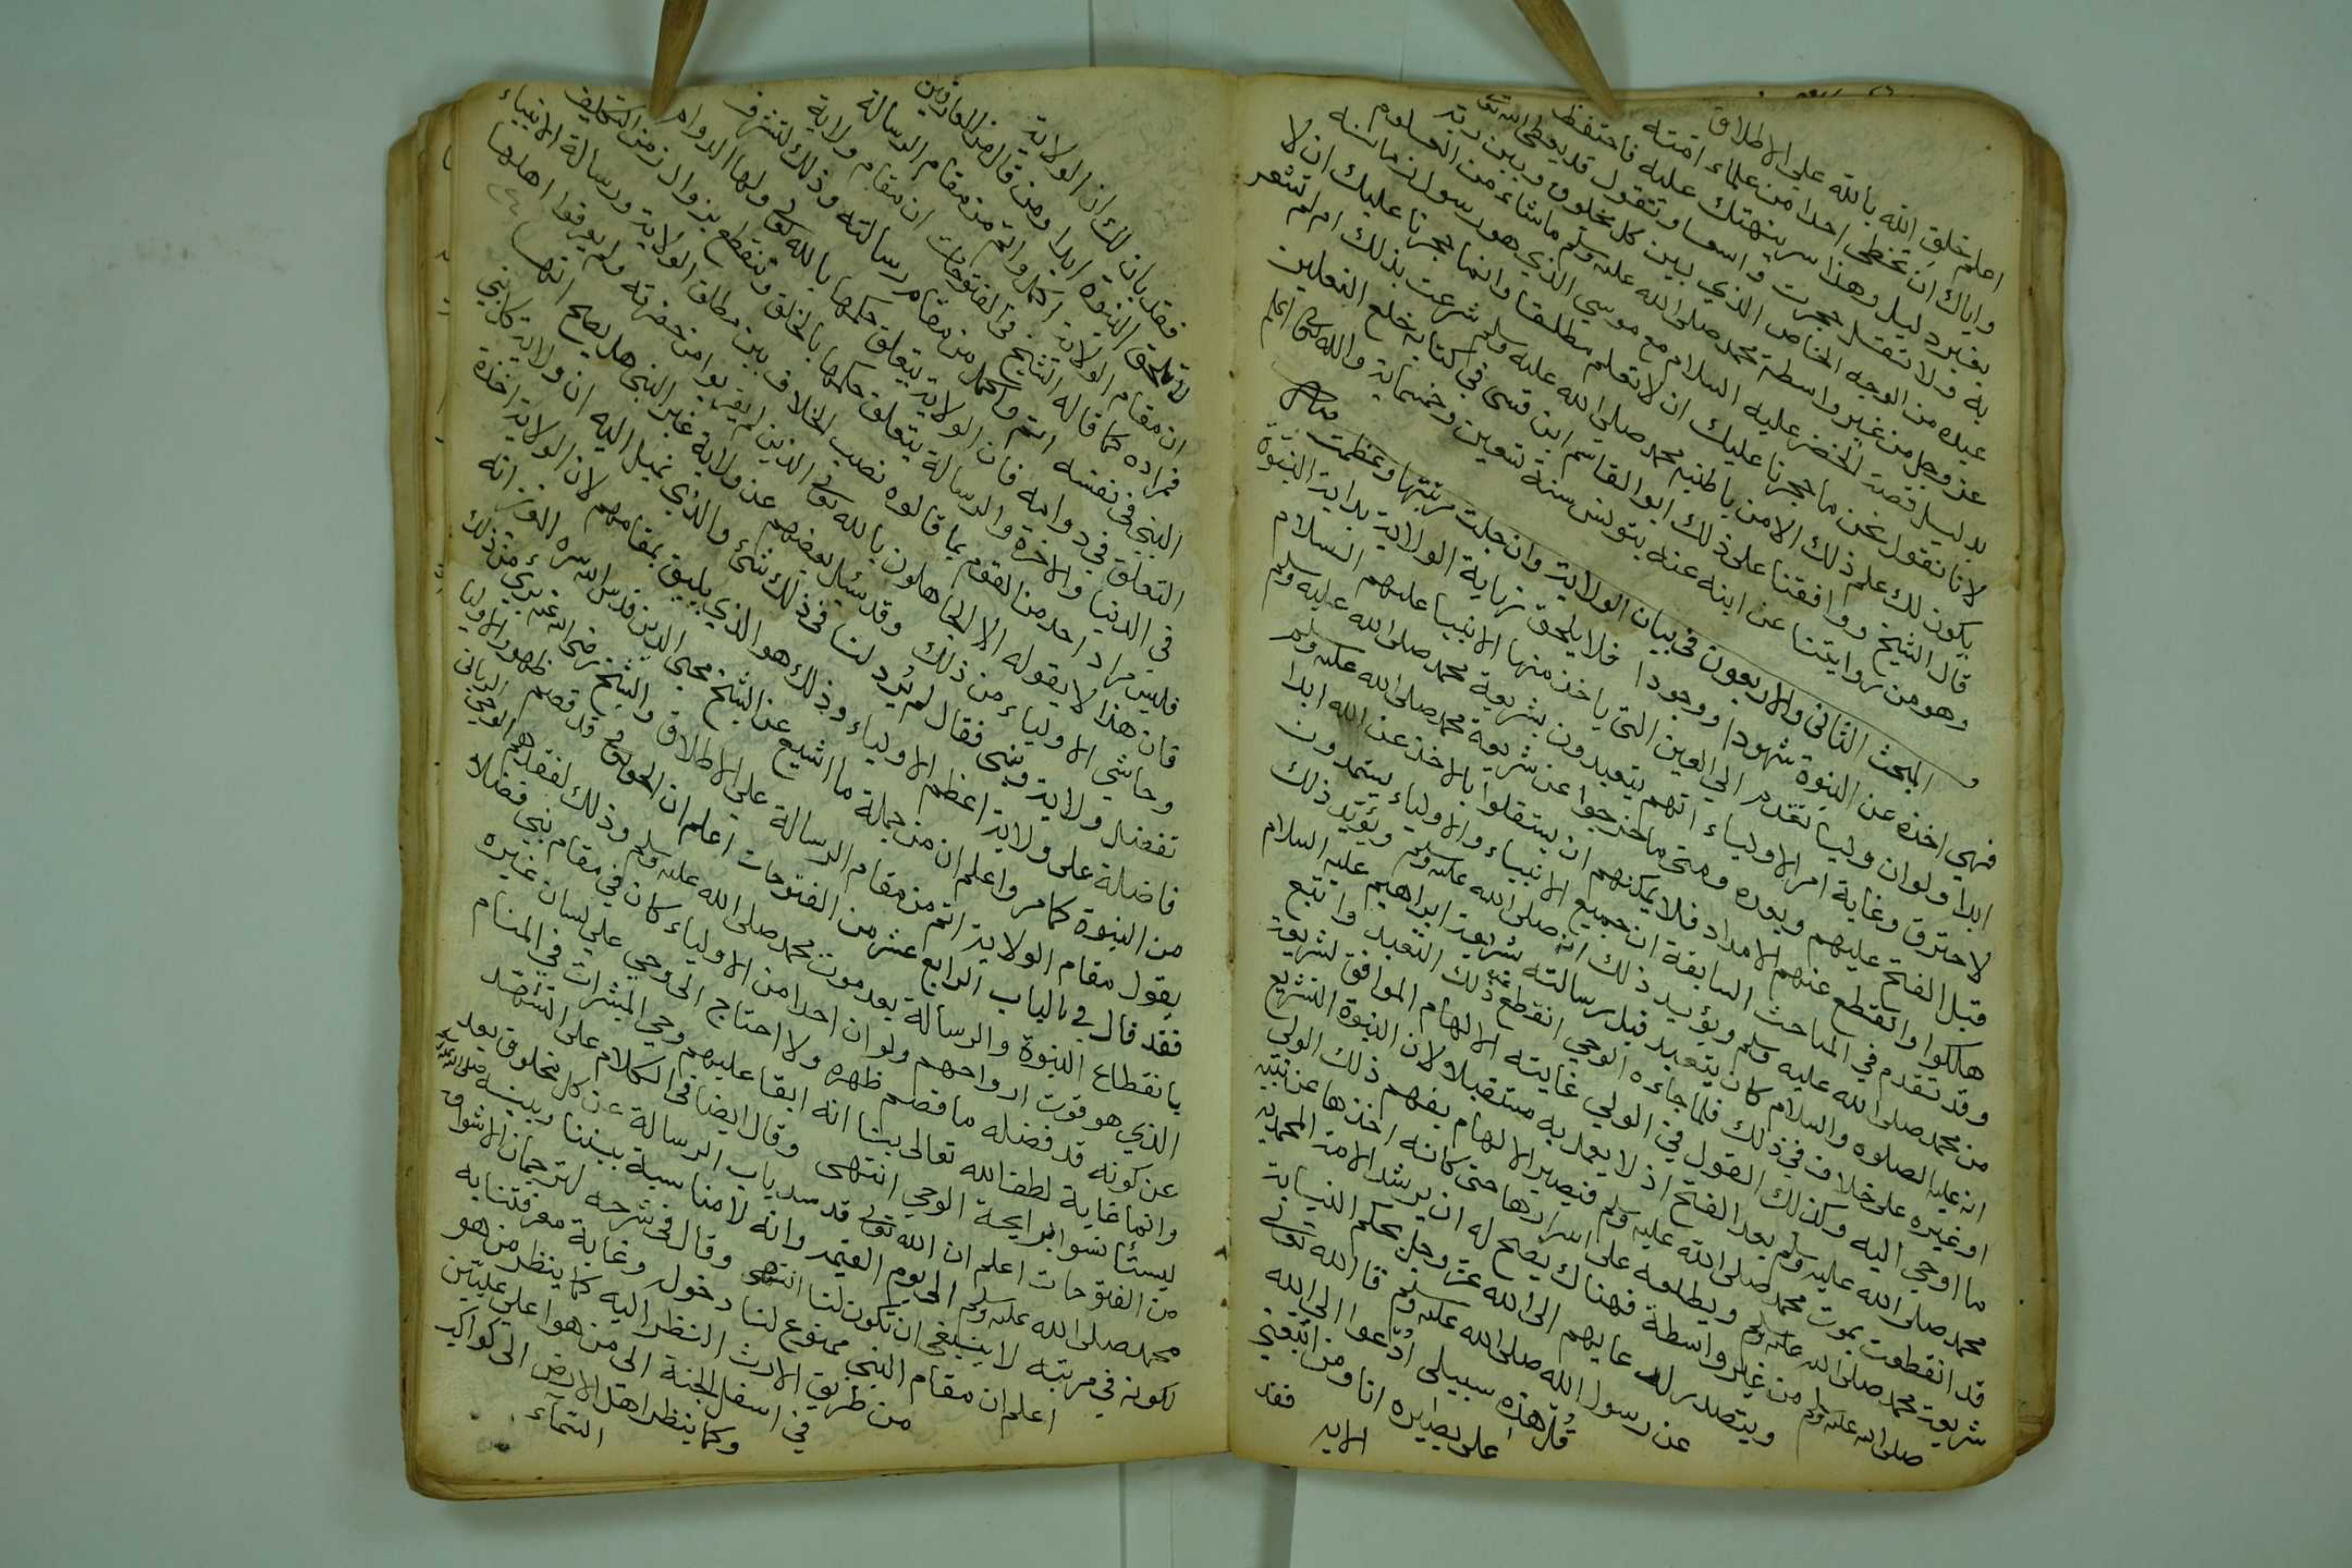 اعلم خلق الله بالله على الاطلاق
واياك ان تخطى احدا من علماء امته
بغير دليل وهذا سر ينهتك عليه فاحتفظ
به ولا تقل حجرت واسعا وتقول قد يعطى الله تعالى
عبده من الوجه الخاص الذي بين كل مخلوق وبين ربه
عز وجل من غير واسطة محمد صلى الله عليه وسلم ماشاء من العلوم
بدليل قصة الخضر عليه السلام مع موسى الذي هو رسول زمانه
لانا نقول نحن ما حجرنا عليك ان لا تعلم مطلقا وانما حجرنا عليك ان لا
يكون لك علم ذلك الا من باطنية محمد صلى الله عليه وسلم شعرت بذلك ام لم تشعر
قال الشيخ ووافقنا على ذلك ابو القاسم ابن قسى في كتابه خلع النعلين
وهو من روايتنا عن ابنه عنه بتونس سنة تسعين وخمسماية والله تعالى اعلم
المبحث الثانى والاربعون فى بيان الولاية وان جلت مرتبتها وعظمت
فهي اخذة عن النبوة شهودا ووجودا فلا يلحق نهاية الولاية بداية النبوة
ابدا ولو ان وليا تقدم الى العين التى ياخذ منها الانبيا عليهم السلام
لاحترق وغاية امر الاولياء انهم يتعبدون بشريعة محمد صلى الله عليه وسلم
قبل الفتح عليهم وبعده ومتى ما خرجوا عن شريعة محمد صلى الله عليه وسلم
هلكوا وانقطع عنهم الامداد فلا يمكنهم ان يستقلوا بالاخذ عن الله ابدا
وقد تقدم في المباحث السابقة ان جميع الانبياء والاولياء يستمدون
من محمد صلى الله عليه وسلم ويؤيد ذلك انه صلى الله عليه وسلم ويؤيد ذلك
انه عليه الصلوة والسلام كان يتعبد قبل رسالته بشريعة ابراهيم عليه السلام
او غيره على خلاف في ذلك فلما جاءه الوحي انقطع عنه ذلك التعبد واتبع
ما اوحي اليه وكذلك القول في الولي غايته الالهام الموافق لشريعة
محمد صلى الله عليه وسلم بعد الفتح اذ لا يعمل به مستقبلا لان النبوة التشريع
قد انقطعت بموت محمد صلى الله عليه وسلم فيصير الالهام يفهم ذلك الولى
شريعة محمد صلى الله عليه وسلم ويطلعه على اسرارها حتى كانه اخذها عن نبيه
صلى الله عليه وسلم من غير واسطة فهناك يصح له ان يرشد الامة المحمدية
ويتصدر لدعايهم الى الله عز وجل بحكم النيابة
عن رسول الله صلى الله عليه وسلم قال الله تعالى
قل هذه سبيلى ادعوا الى الله
على بصيرة انا ومن اتبعنى
الاية
فقد
فقد بان لك ان الولاية
لا تلحق النبوة ابدا ومن قال من العارفين
ان مقام الولاية اكمل واتم من مقام الرسالة
فمراده كما قاله الشيخ فى الفتوحات ان مقام ولاية
النبي فى نفسه اتم واكمل من مقام رسالته وذلك لشرف
التعلق في دوامه فان الولاية يتعلق حكمها بالله تعالى ولها الدوام
فى الدنيا والاخرة والرسالة يتعلق حكمها بالخلق وتنقطع بزوال زمن التكليف
فليس مراد احد من القوم بما قالوه نصب الخلاف بين مطلق الولاية ورسالة الانبياء
فان هذا لا يقوله الا الجاهلون بالله تعالى الذين لم يقربوا من حضرته ولم يعرفوا اهلها
وحاشى الاولياء من ذلك وقد سئل بعضهم عن ولاية غير النبي هل يصح انها
تفضل ولاية نبى فقال لم يرد لنا فى ذلك شئ والذي نميل اليه ان ولاية كل نبي
فاضلة على ولاية اعظم الاولياء وذلك هو الذي يليق بمقامهم لان الولاية اخذة
من النبوة كما مر واعلم ان من جملة ما اشيع عن الشيخ محيي الدين قدس الله سره العزيز انه
يقول مقام الولاية اتم من مقام الرسالة على الاطلاق والشيخ رضى الله عنه برئ من ذلك
فقد قال في الباب الرابع عشر من الفتوحات اعلم ان الحق تعالى قد قصم ظهور الاوليا
بانقطاع النبوة والرسالة بعد موت محمد صلى الله عليه وسلم وذلك لفقدهم الوحي الربانى
الذي هو قوت ارواحهم ولو ان احدا من الاولياء كان في مقام نبي فضلا
عن كونه قد فضله ما قصم ظهره ولا احتاج الى وحي على لسان غيره
وانما غاية لطف الله تعالى بنا انه ابقا عليهم وحي المبشرات في المنام
ليستانسوا برايحة الوحي انتهى وقال ايضا فى الكلام على التشهد
من الفتوحات اعلم ان الله تعالى قد سد باب الرسالة عن كل مخلوق بعد
محمد صلى الله عليه وسلم الى يوم القيمة وانه لا مناسبة بيننا وبينه صلى الله عليه وسلم
لكونه في مرتبة لا ينبغي ان تكون لنا انتهى وقال فى شرحه لترجمان الاشواق
اعلم ان مقام النبي ممنوع لنا دخوله وغاية معرفتنا به
من طريق الارث النظر اليه كما ينظر من هو
في اسفل الجنة الى من هو اعلى عليين
وكما ينظر اهل الارض الى كواكب
السماء